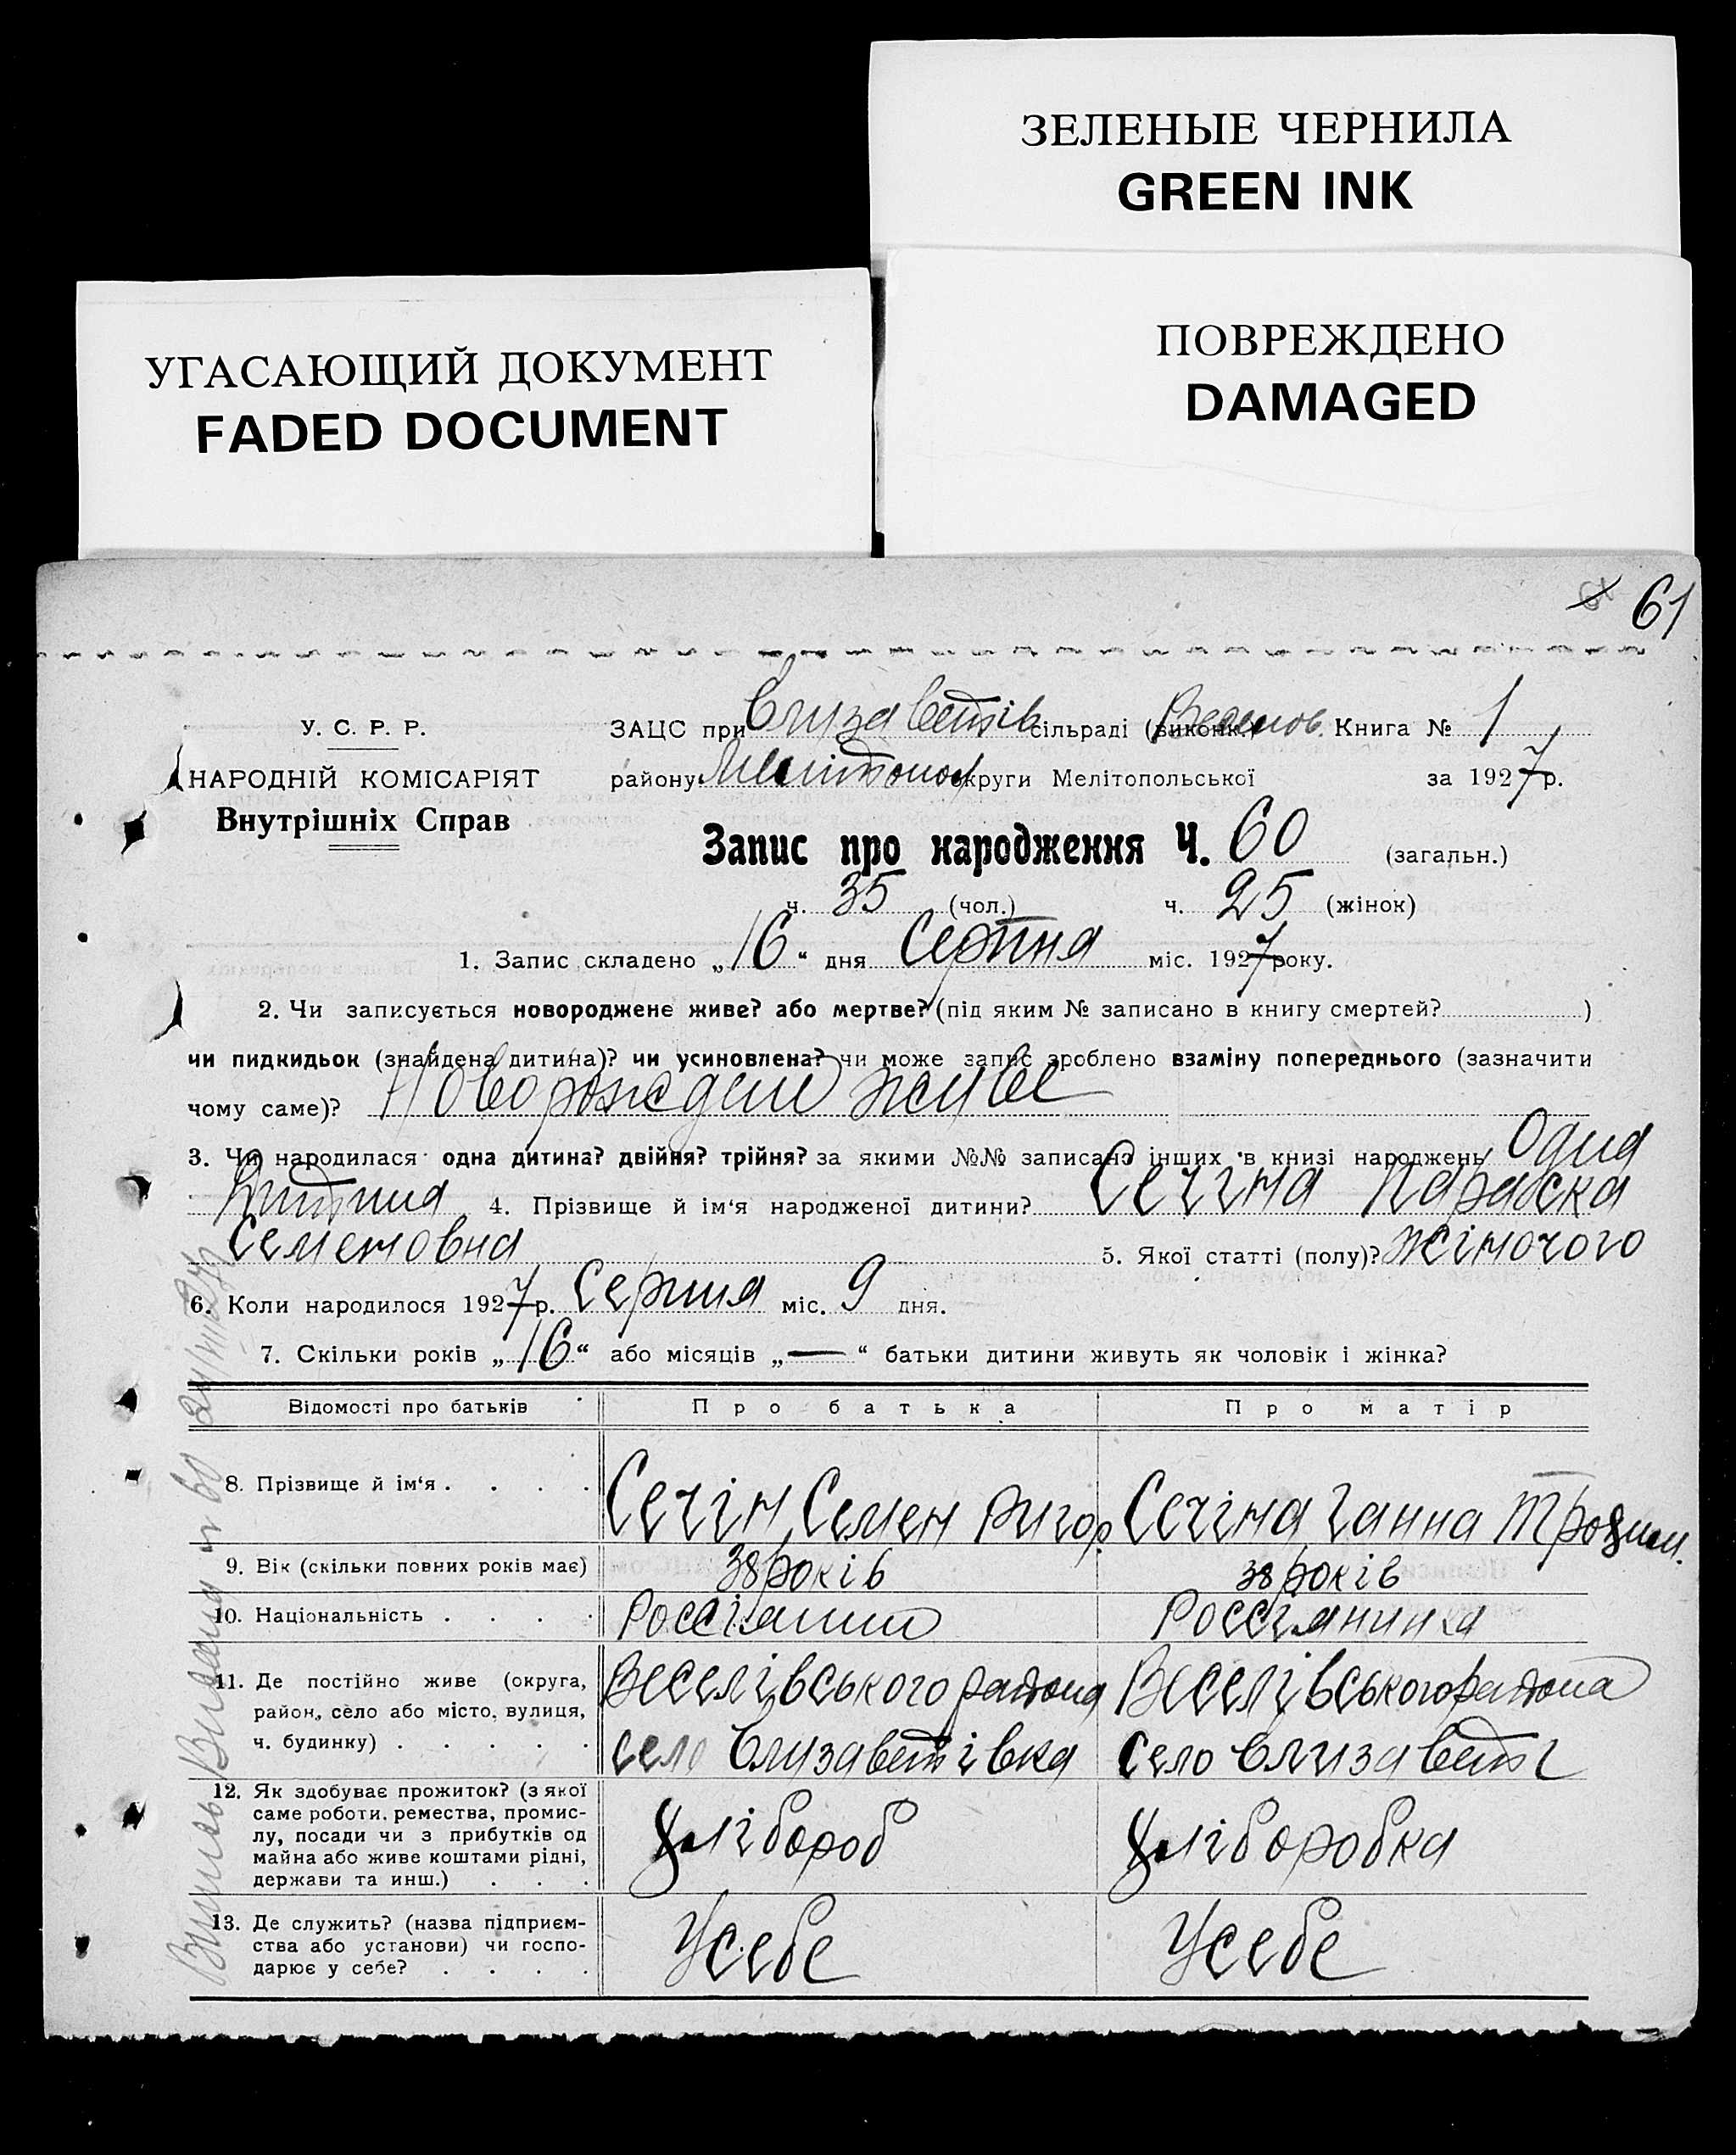 ЗЕЛЕНЫЕ ЧЕРНИЛА
GREEN INK
УГАСАЮЩИЙ ДОКУМЕНТ
FADED DOCUMENT
ПОВРЕЖДЕНО
DAMAGED
61
У. С. Р. Р.
НАРОДНІЙ КОМІСАРІЯТ
Внутрішніх Справ
ЗАЦС при Єлизаветів сільраді (виконк.) Книга № 1
району Мелітопол округи Мелітопольської за 1927 р.
Запис про народження Ч. 60 (загальн.)
ч. 35 (чол.) ч. 25 (жінок)
1. Запис складено „16“ дня Серпня міс. 1927 року.
2. Чи записується новороджене живе? або мертве? (під яким № записано в книгу смертей? )
чи пидкидьок (знайдена дитина)? чи усиновлена? чи може запис зроблено взаміну попереднього (зазначити
чому саме)? живе
3. Чи народилася одна дитина? двійня? трійня? за якими №№ записано інших в книзі народжень Одна
Дитина 4. Прізвище й ім‘я народженої дитини? Сечіна Параска
Семеновна 5. Якої статті (полу)? жіночого
6. Коли народилося 1927 р. Серпня міс. 9 дня.
7. Скільки років „16“ або місяців „—“ батьки дитини живуть як чоловік і жінка?
Відомості про батьків Про батька Про матір
8. Прізвище й ім‘я . . . . Сечін Семен Григор Сечіна Ганна Трохим.
9. Вік (скільки повних років має) 38 років 38 років
10. Національність . . . . Россіянин Россіянинка
11. Де постійно живе (округа,
район, село або місто, вулиця,
ч. будинку) . . . . .
Веселівського района Веселівського района
село Єлизаветівка село Єлизаветі
12. Як здобуває прожиток? (з якої
саме роботи, ремества, промис-
лу, посади чи з прибутків од
майна або живе коштами рідні,
держави та инш.) . . .
Хлібороб Хліборобка
13. Де служить? (назва підприєм-
ства або установи) чи госпо-
дарює у себе? . . . .
У себе У себе